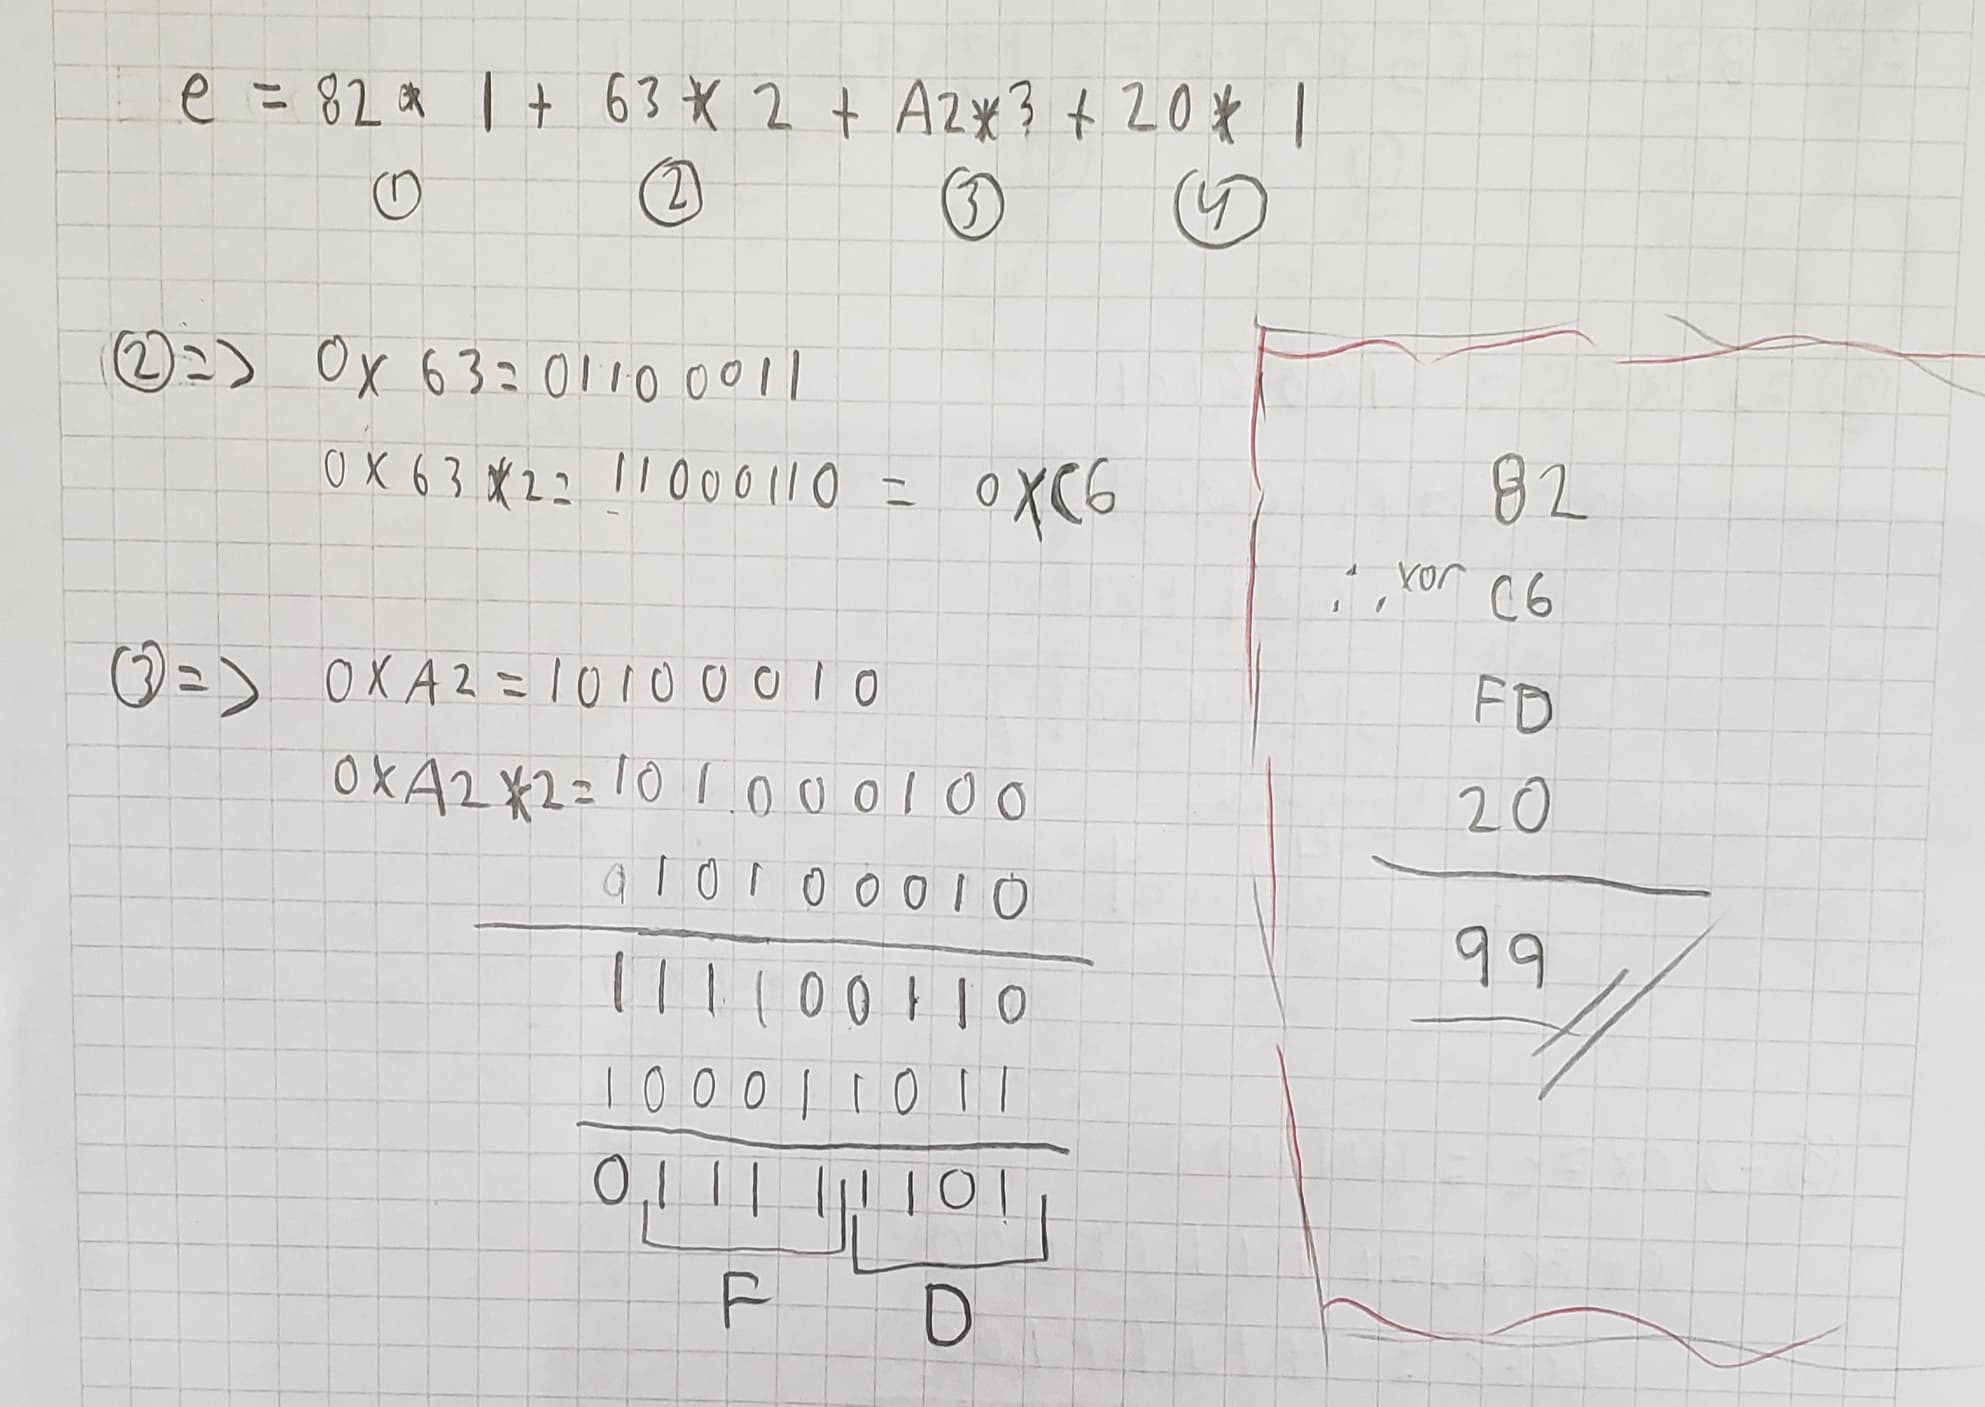 e = 82 * 1 + 63 * 2 + A2*3 + 20 * 1
① ② ③ ④
② => 0x 63 = 01100011
0x63*2 = 11000110 = 0xC6
③ => 0xA2 = 10100010
0xA2*2 = 101000100
010100010
111100110
100011011
011111101
F D
82
∴ xor C6
FD
20
99